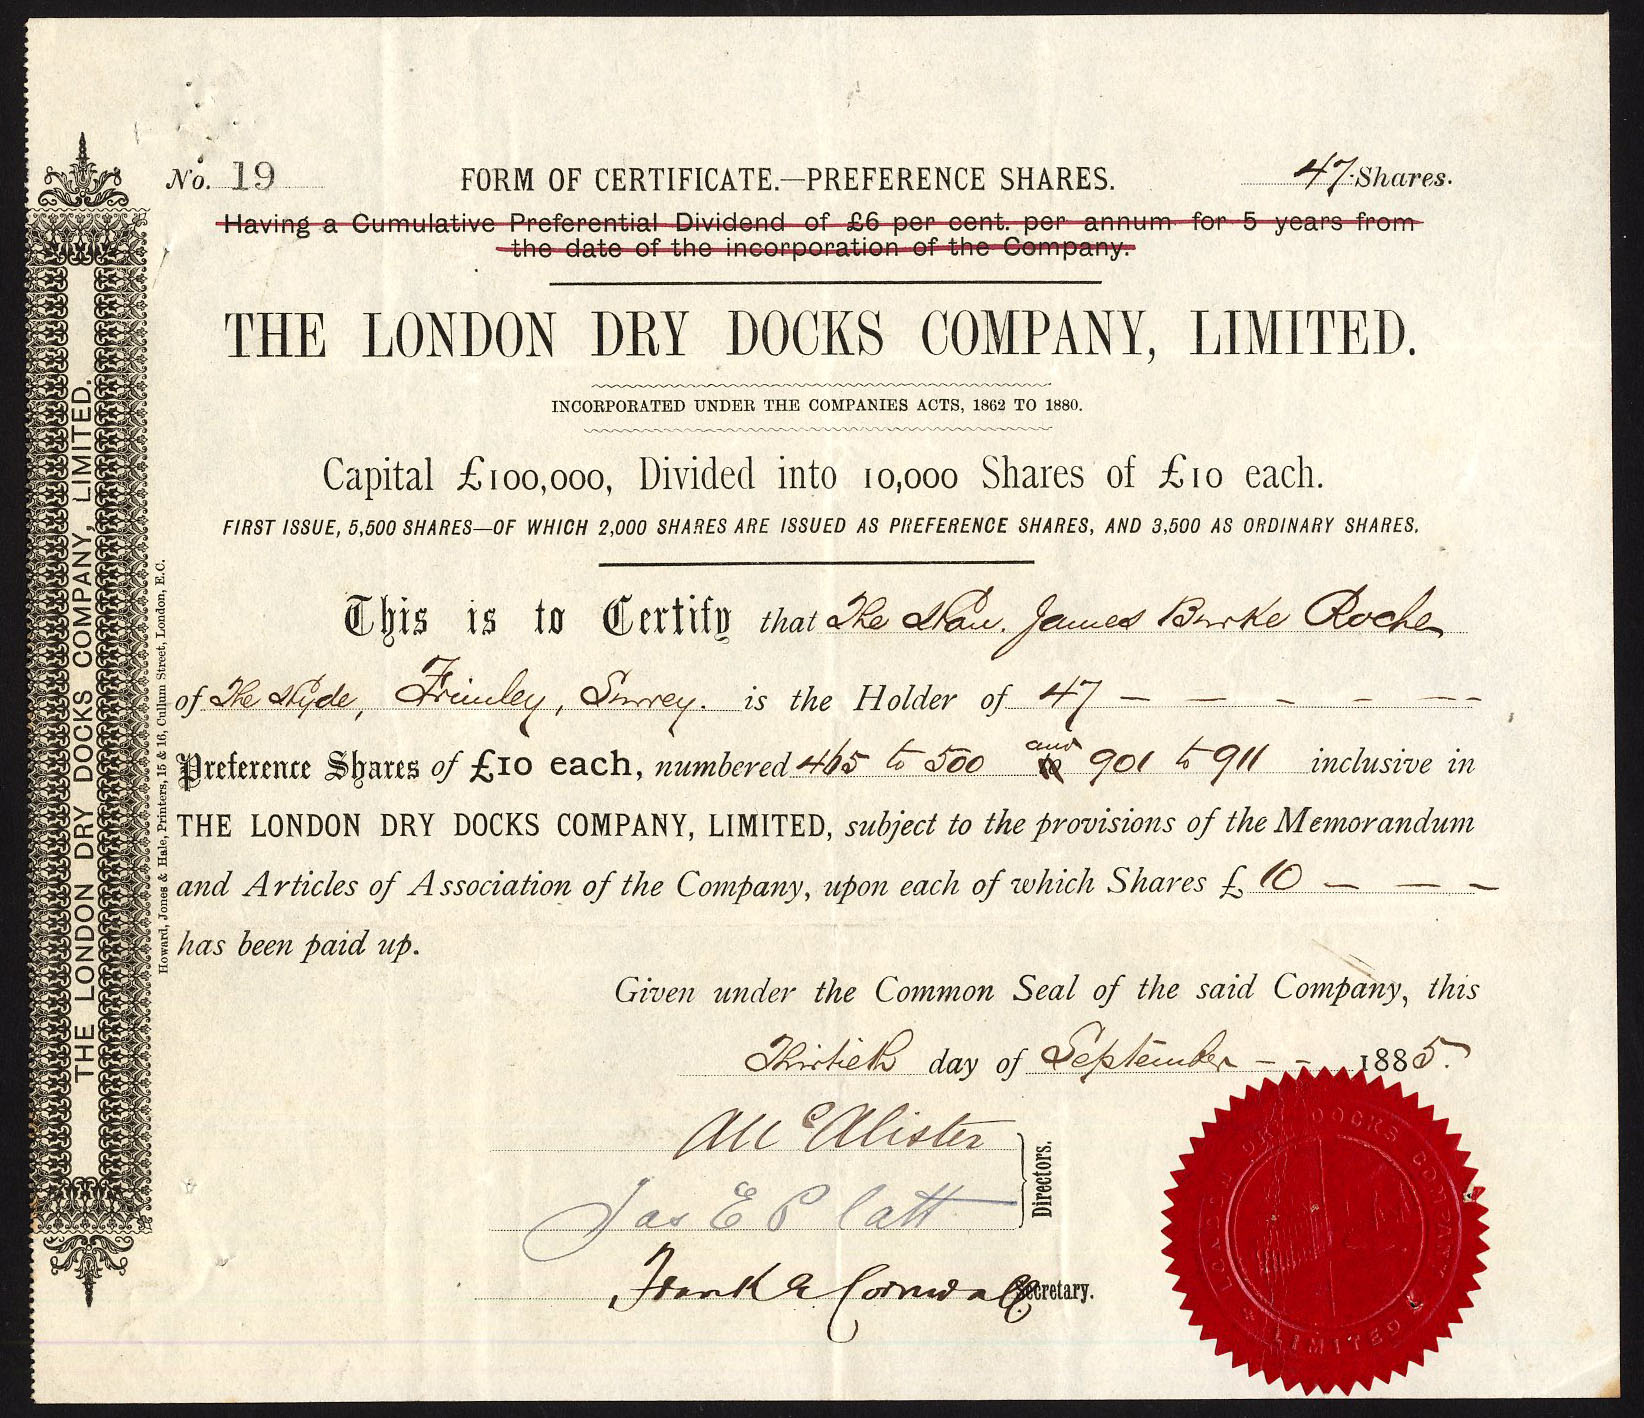 No. 19 FORM OF CERTIFICATE.—PREFERENCE SHARES. 47 Shares.
Having a Cumulative Preferential Dividend of £6 per cent. per annum for 5 years from
the date of the incorporation of the Company.
THE LONDON DRY DOCKS COMPANY, LIMITED.
INCORPORATED UNDER THE COMPANIES ACTS, 1862 TO 1880.
Capital £100,000, Divided into 10,000 Shares of £10 each.
FIRST ISSUE, 5,500 SHARES—OF WHICH 2,000 SHARES ARE ISSUED AS PREFERENCE SHARES, AND 3,500 AS ORDINARY SHARES.
This is to Certify that The Hon. James Burke Roche
of The Hyde, Frimley, Surrey. is the Holder of 47 — — — — —
Preference Shares of £10 each, numbered 465 to 500 and 901 to 911 inclusive in
THE LONDON DRY DOCKS COMPANY, LIMITED, subject to the provisions of the Memorandum
and Articles of Association of the Company, upon each of which Shares £10 — — —
has been paid up.
Given under the Common Seal of the said Company, this
Thirtieth day of September - - 1885.
McAlister
Jas E Platt
Directors.
Frank A Cornwall Secretary.
LONDON DRY DOCKS COMPANY
LIMITED
THE LONDON DRY DOCKS COMPANY, LIMITED.
Howard, Jones & Hale, Printers, 15 & 16, Cullum Street, London, E.C.